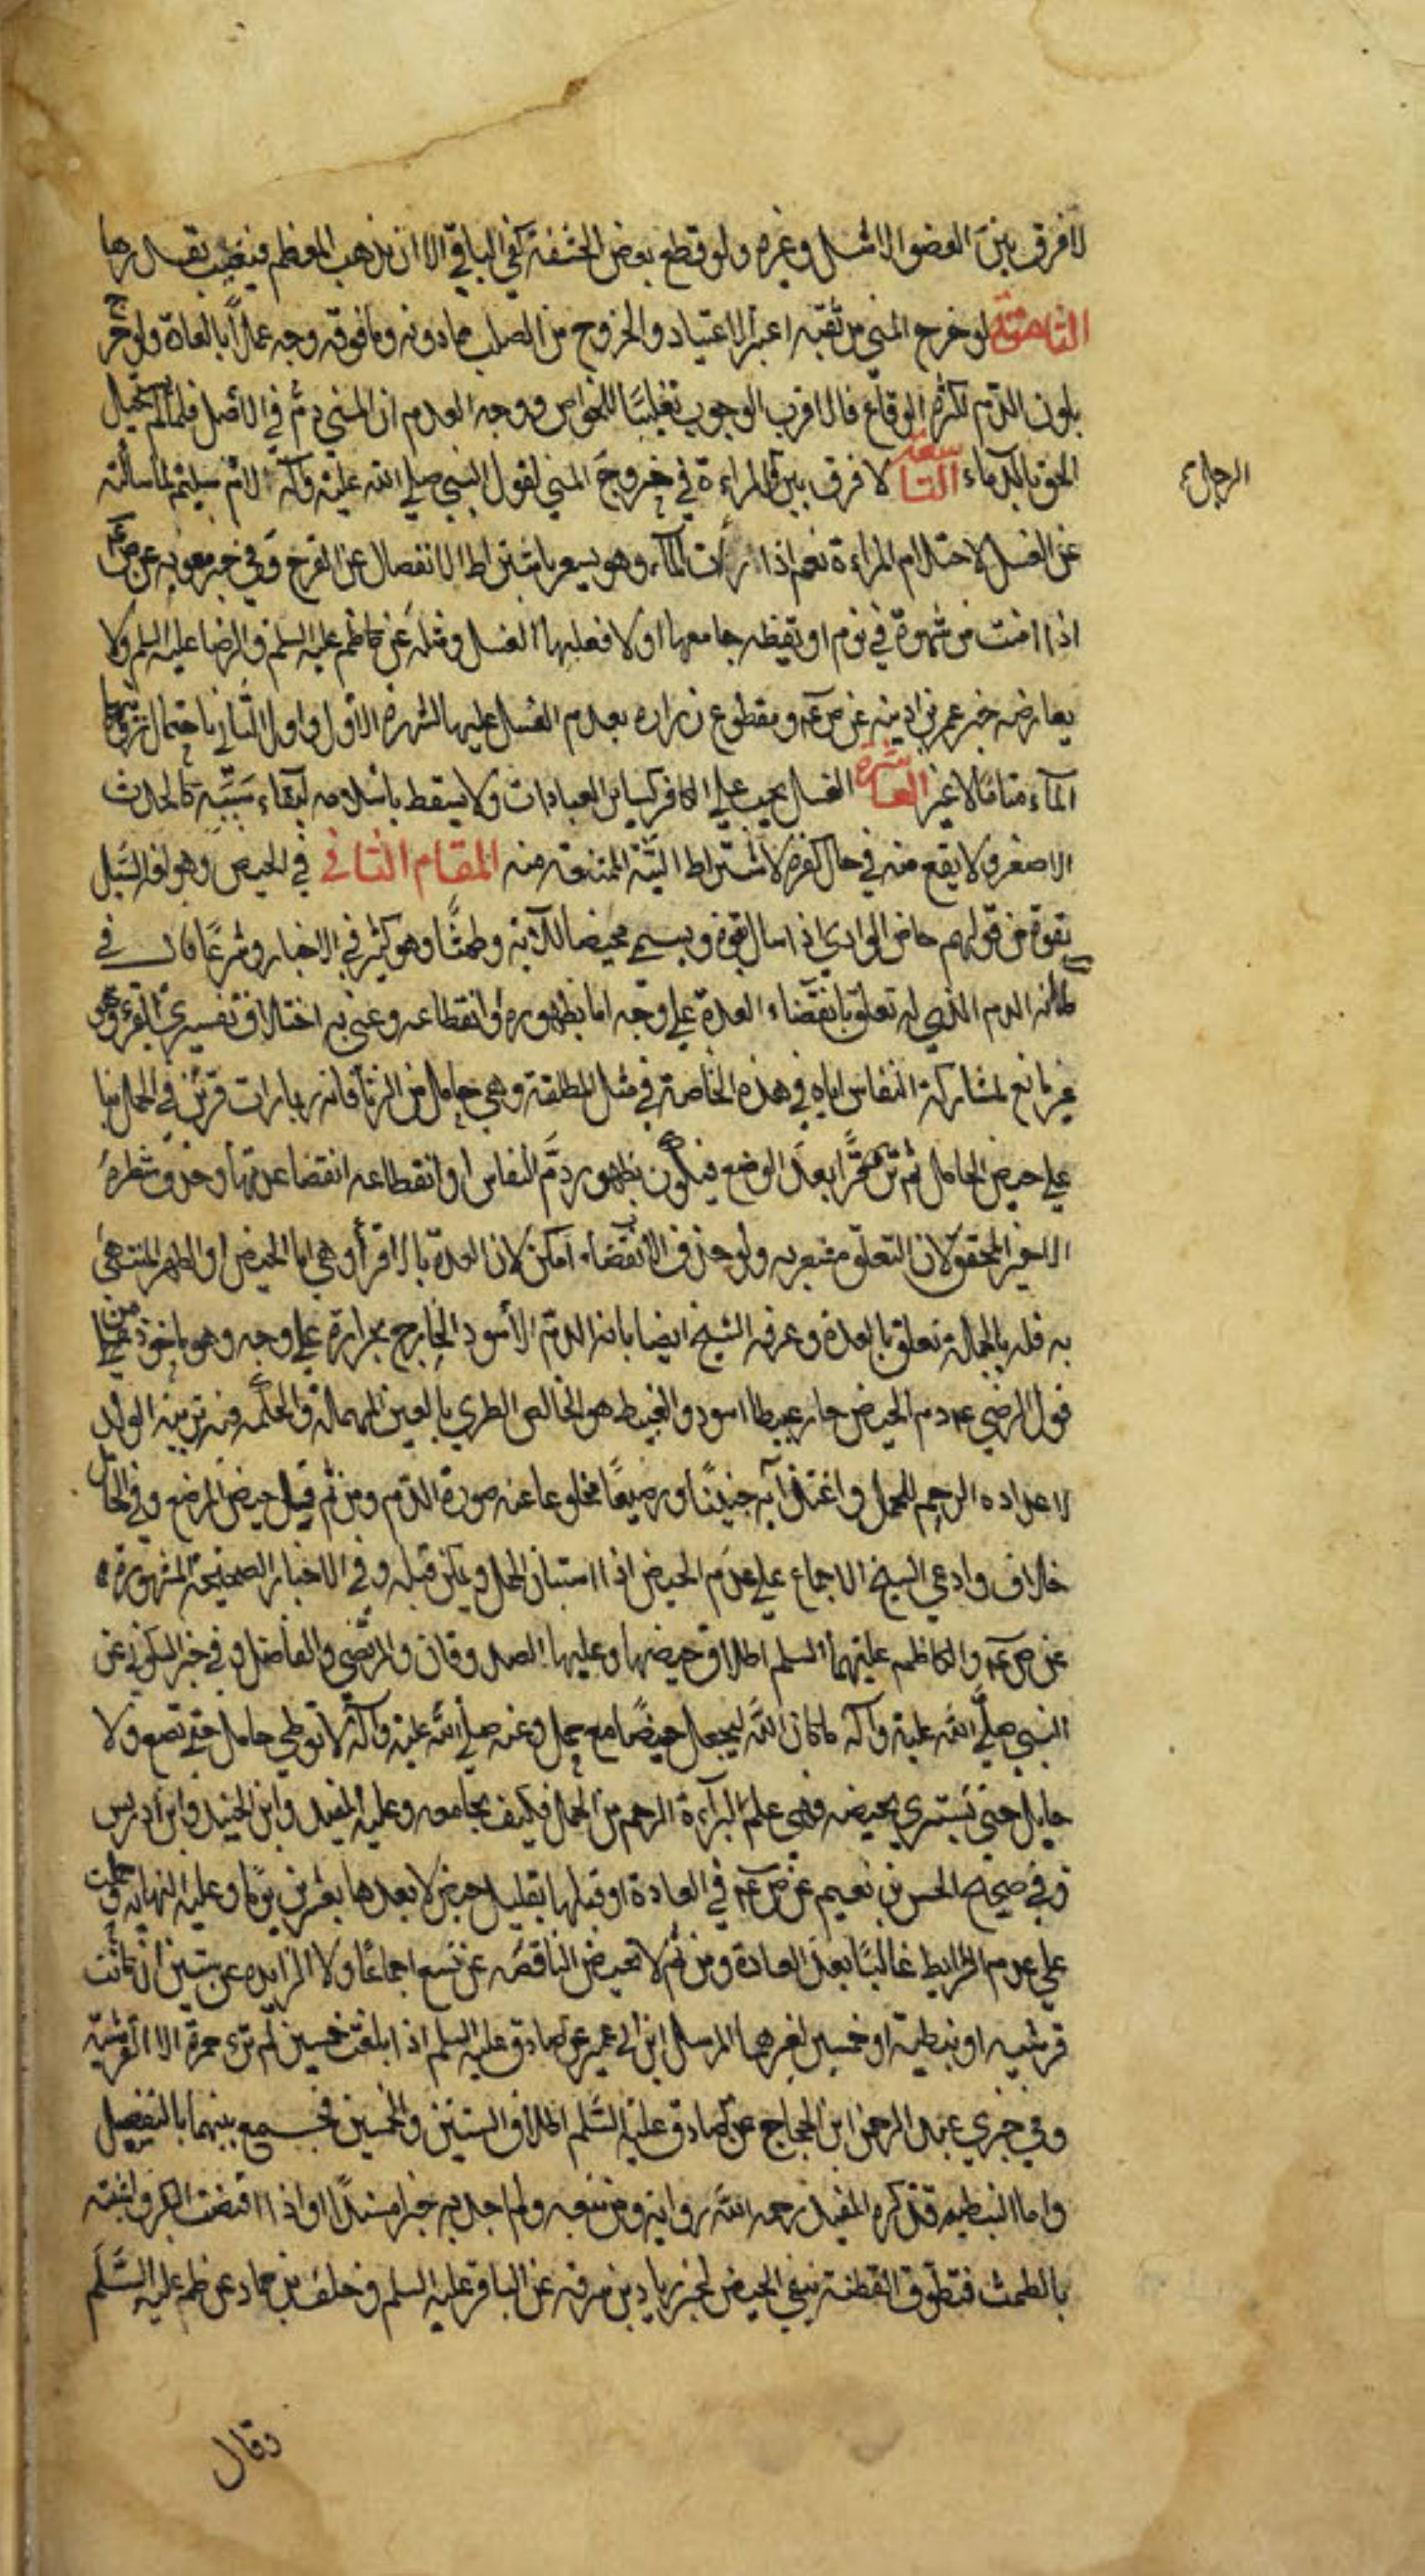 لا فرق بين العضو الاشل وغيره ولو قطع بعض الحشفة كفى الباقي الا ان يذهب المعظم فيغيب بقدرها
الثامنة لو خرج المني من ثقبه اعتبر الاعتياد والخروج من الصلب فما دونه وما فوقه وجه عملا بالعادة ولو خرج
بلون الدم لكثرة الوقاع فالاقرب الوجوب تغليبا للخواص ووجه العدم ان المني دم في الاصل فلما لم يستحيل
الحق بالدماء التاسعة لا فرق بين والمراءة في خروج المني لقول النبي صلى الله عليه وآله لام سليم لما سألته
الرجال
عن الغسل لاحتلام المراءة نعم اذا رأت الماء وهو يشعر باشتراط الانفصال عن الفرج وفي خبر معويه عن ص ع
اذا امنت من شهوة في نوم او يقظه جامعها او لا فعليها الغسل ومثله عن كاظم عليه السلم والرضا عليه السلم ولا
يعارضه خبر عمر بن اذينه عن ص ع ومقطوع زراره بعدم الغسل عليها لشهرة الاول واول الثاني باحتمال رؤيتها
الماء مناما لا غير العاشرة الغسل يجب على الكافر كسائر العبادات ولا يسقط باسلامه لبقاء سببه كالحدث
الاصغر ولا يقع منه في حال كفره لاشتراط النية الممتنعة منه المقام الثاني في الحيض وهو لغة السيل
بقوة من قولهم حاض الوادي اذا سال بقوة ويسمى محيضا للآية وطمثا وهو كثير في الاخبار وشرعا قال في
الدم الذي له تعلق بانقضاء العدة على وجه اما بظهوره او انقطاعه وعني به اختلاف تفسيري القرء وهو
غير مانع لمشاركة النفاس اياه في هذه الخاصة في مثل المطلقة وهي حامل من الزنا فانه ربما رات قرئين في الحمل بنا
على حيض الحامل ثم بعد الوضع فيكون بظهور دم النفاس او انقطاعه انقضا عدتها وحذف شطره
الاخير المحقق لان التعلق مشعر به ولو حذف الانقضاء امكن لان العدة بالاقرأ وهي اما الحيض او الطهر المنتهى
به فله بالجملة تعلق بالعدة وعرفه الشيخ ايضا بانه الدم الاسود الخارج بحرارة على وجه وهو ماخوذ من
قول الرضي ع دم الحيض حار عبيط اسود والعبيط هو الخالص الطري بالعين المهملة والحكمة منه تربية الولد
لاعداده الرحم للحمل واغتذائه جنينا ورضيعا مخلوعا عنه صورة الدم ومن ثم قيل حيض المرضع وفي الحامل
خلاف وادعى الشيخ الاجماع على عدم الحيض اذا استبان الحمل ويمكن قبله وفي الاخبار الصحيحة المشهورة
عن ص ع والكاظم عليهما السلم اطلاق حيضها وعليها الصدوقان والمرتضى والفاضل وفي خبر السكوني عن
النبي صلى الله عليه وآله ما كان الله ليجعل حيضا مع حمل وعنه صلى الله عليه وآله لا توطى حامل حتى تضع ولا
حايل حتى تستبري بحيضه فهي علم البرآءة الرحم من الحمل فكيف يجامعه وعليه المفيد وابن الجنيد وابن ادريس
وفي صحيح الحسن بن نعيم عن ص ع في العادة او قبلها بقليل حيض لا بعدها بعشرين يوما وعليه النهايه وحملت
على عدم الشرايط غالبا بعد العادة ومن ثم لا تحيض الناقصه عن تسع اجماعا ولا الزايده عن ستين ان كانت
قرشيه او نبطية او خمسين لغيرهما المرسل ابن ابي عمير عن الصادق عليه السلم اذا بلغت خمسين لم ترى حمرة الا القرشية
وفي خبري عبد الرحمن ابن الحجاج عن الصادق عليه السلم اطلاق الستين والخمسين فجمع بينهما بالتفصيل
واما النبطيه فقد ذكره المفيد رحمه الله رواية ومن تبعه ولم اجد به خبرا مسندا واذا اقتضت البكر واشتبه
بالطمث فتطوق القطنة ينفي الحيض لخبر زياد بن سوقه عن الباقر عليه السلم وخلف بن حماد عن ظم عليه السلم
وقال